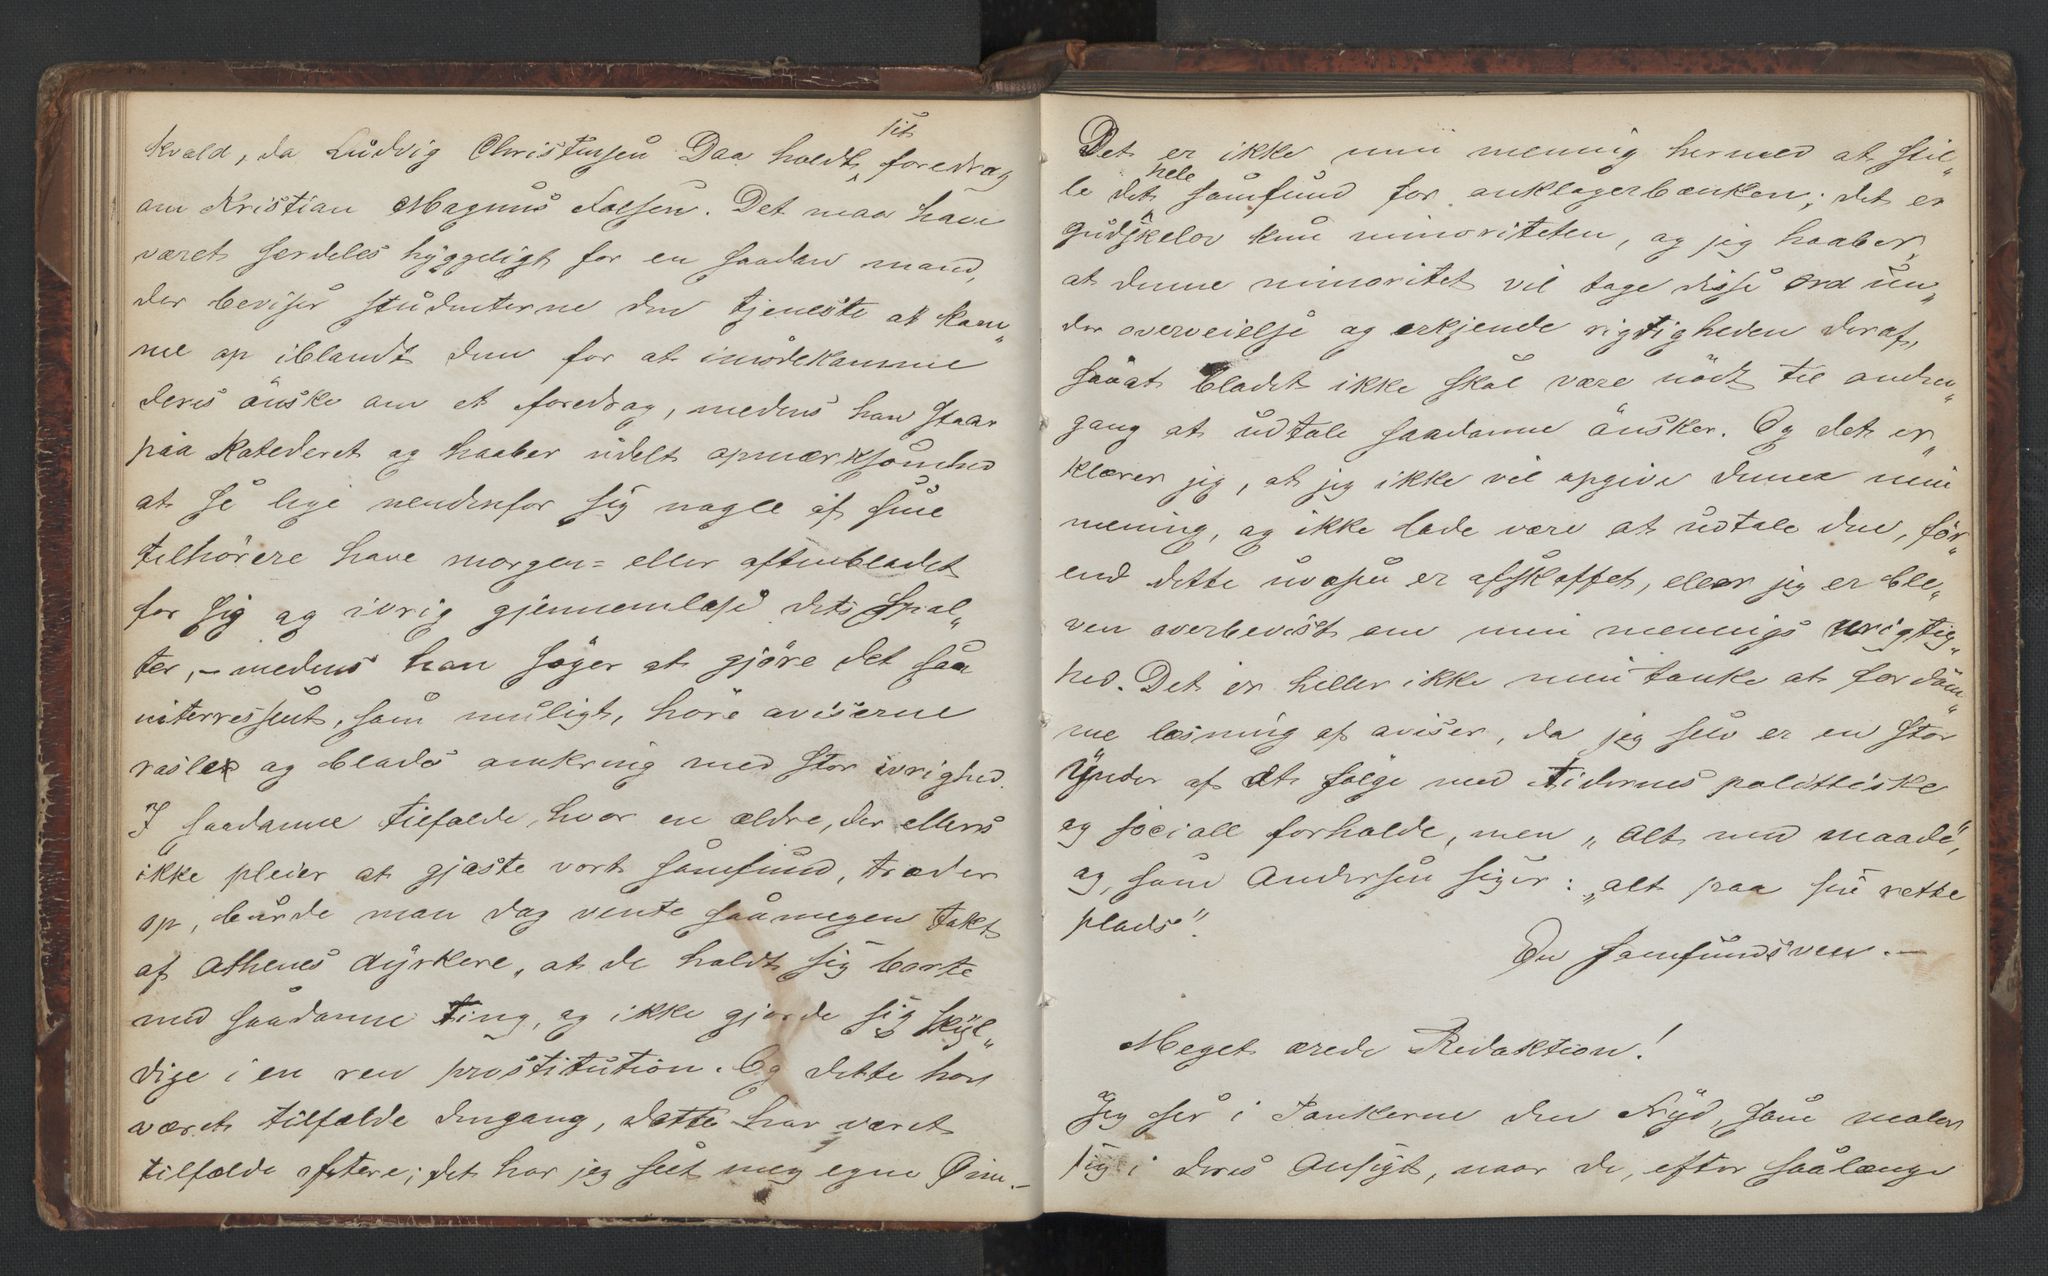 kvæld, da Ludvig Christensen Daa holdt sit foredrag
om Kristian Magnus Falsen. Det maa have
været særdeles hyggeligt for en saadan mand,
der beviser studenterne den tjeneste at kom„
me op iblandt dem for at imødekomme
deres önske om et foredrag, medens han staar
paa katederet og haaber udelt opmærksomhed
at se lige nedenfor sig nogle af sine
tilhörere have morgen= eller aftenbladet
for sig og ivrig gjennemlæse dets spal„
ter, – medens han søger at gjöre det saa
interressent, som muligt, höre aviserne
rasle og blades omkring med stor ivrighed.
I saadanne tilfælde, hvor en ældre, der ellers
ikke pleier at gjæste vort samfund, træder
op, burde man dog vente saamegen takt
af Athenes dyrkere, at de holdt sig borte
med saadanne ting, og ikke gjorde sig skyl„
dige i en ren prostitution. Og dette har
været tilfælde dengang, dette har været
tilfælde oftere; det har jeg seet med egne Øine. –
Det er ikke min mening hermed at stil„
le det hele samfund for anklagerbænken; det er
gudskelov kun minoriteten, og jeg haaber,
at denne minoritet vil tage disse ord un„
der overveielse og erkjende rigtigheden deraf,
saaat bladet ikke skal være nödt til anden„
gang at udtale saadanne önsker. Og det er„
klærer jeg, at jeg ikke vil opgive denne min
mening, og ikke lade være at udtale den, för„
end dette uvæsen er afskaffet, eller jeg er ble„
ven overbevist om min menings urigtig„
hed. Det er heller ikke min tanke at fordöm„
me læsning af aviser, da jeg selv er en stor
Ynder af at fölge med tidernes polittiske
og sociall forholde, men „Alt med maade“,
og, som Andersen siger: „alt paa sin rette
plads“.
En samfundsven. –
Meget ærede Redaktion!
Jeg ser i Tankerne den Fryd, som maler
sig i deres Ansigt, naar de, efter saalænge